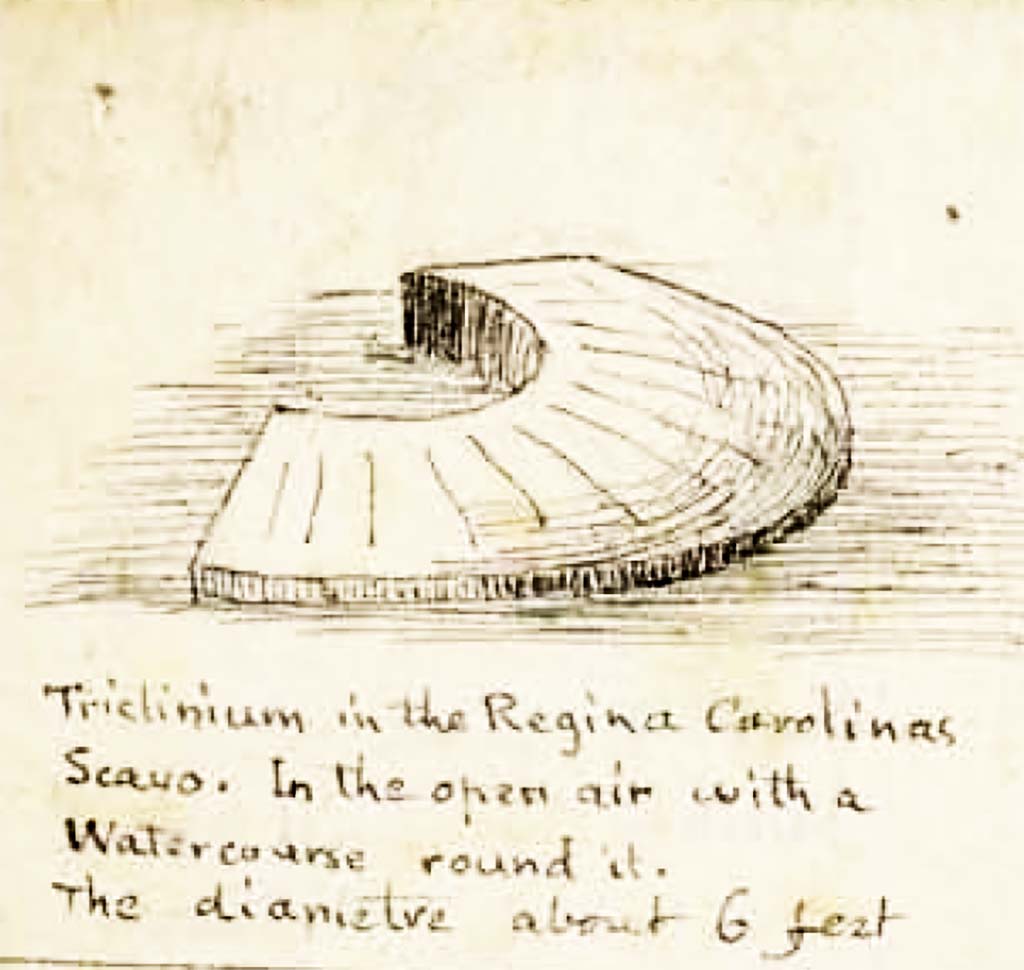 Triclinium in the Regina Carolinas
Scavo. In the open air with a
Watercourse round it.
The diametre about 6 feet